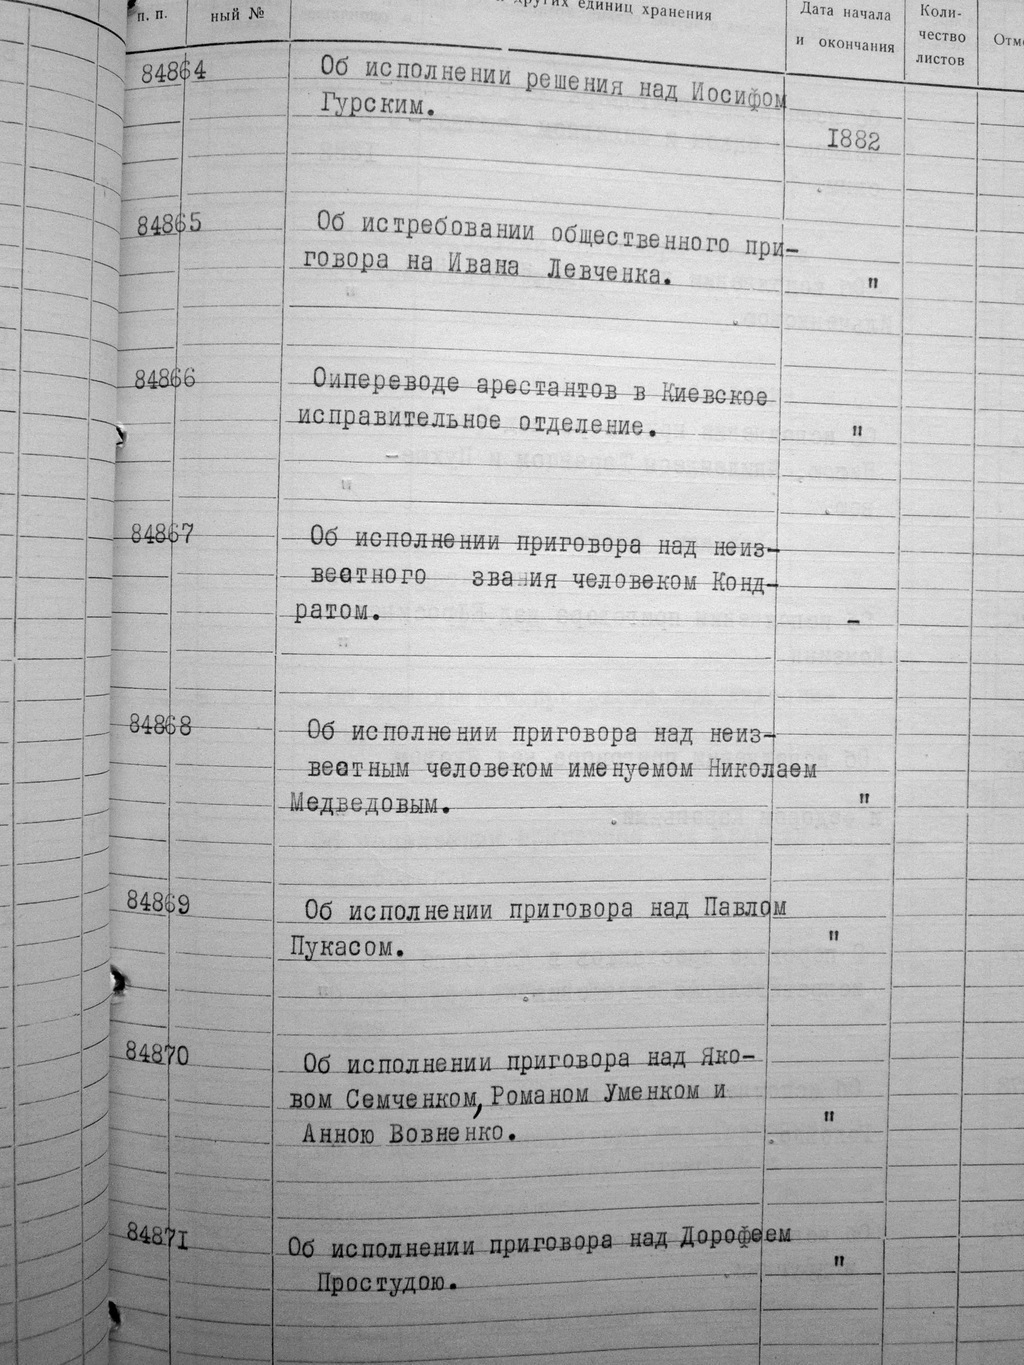 п. п.
ный №
других единиц хранения
Дата начала
и окончания
Коли-
чество
листов
84864
Об исполнении решения над Иосифом
Гурским.
1882
84865
Об истребовании общественного при-
говора на Ивана Левченка.
"
84866
Оипереводе арестантов в Киевское
исправительное отделение.
"
84867
Об исполнении приговора над неиз-
вестного звания человеком Конд-
ратом.
-
84868
Об исполнении приговора над неиз-
вестным человеком именуемом Николаем
Медведовым.
"
84869
Об исполнении приговора над Павлом
Пукасом.
"
84870
Об исполнении приговора над Яко-
вом Семченком, Романом Уменком и
Анною Вовненко.
"
84871
Об исполнении приговора над Дорофеем
Простудою.
"